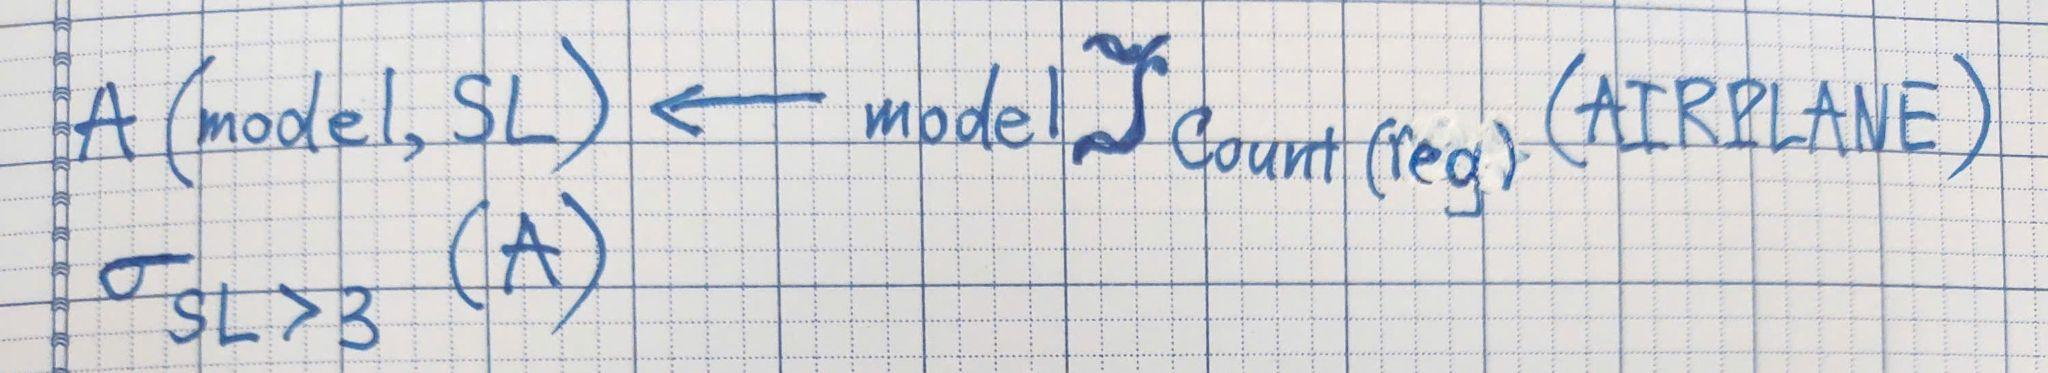 A (model, SL) ← model ℱ Count (reg) (AIRPLANE)
σ SL > 3 (A)